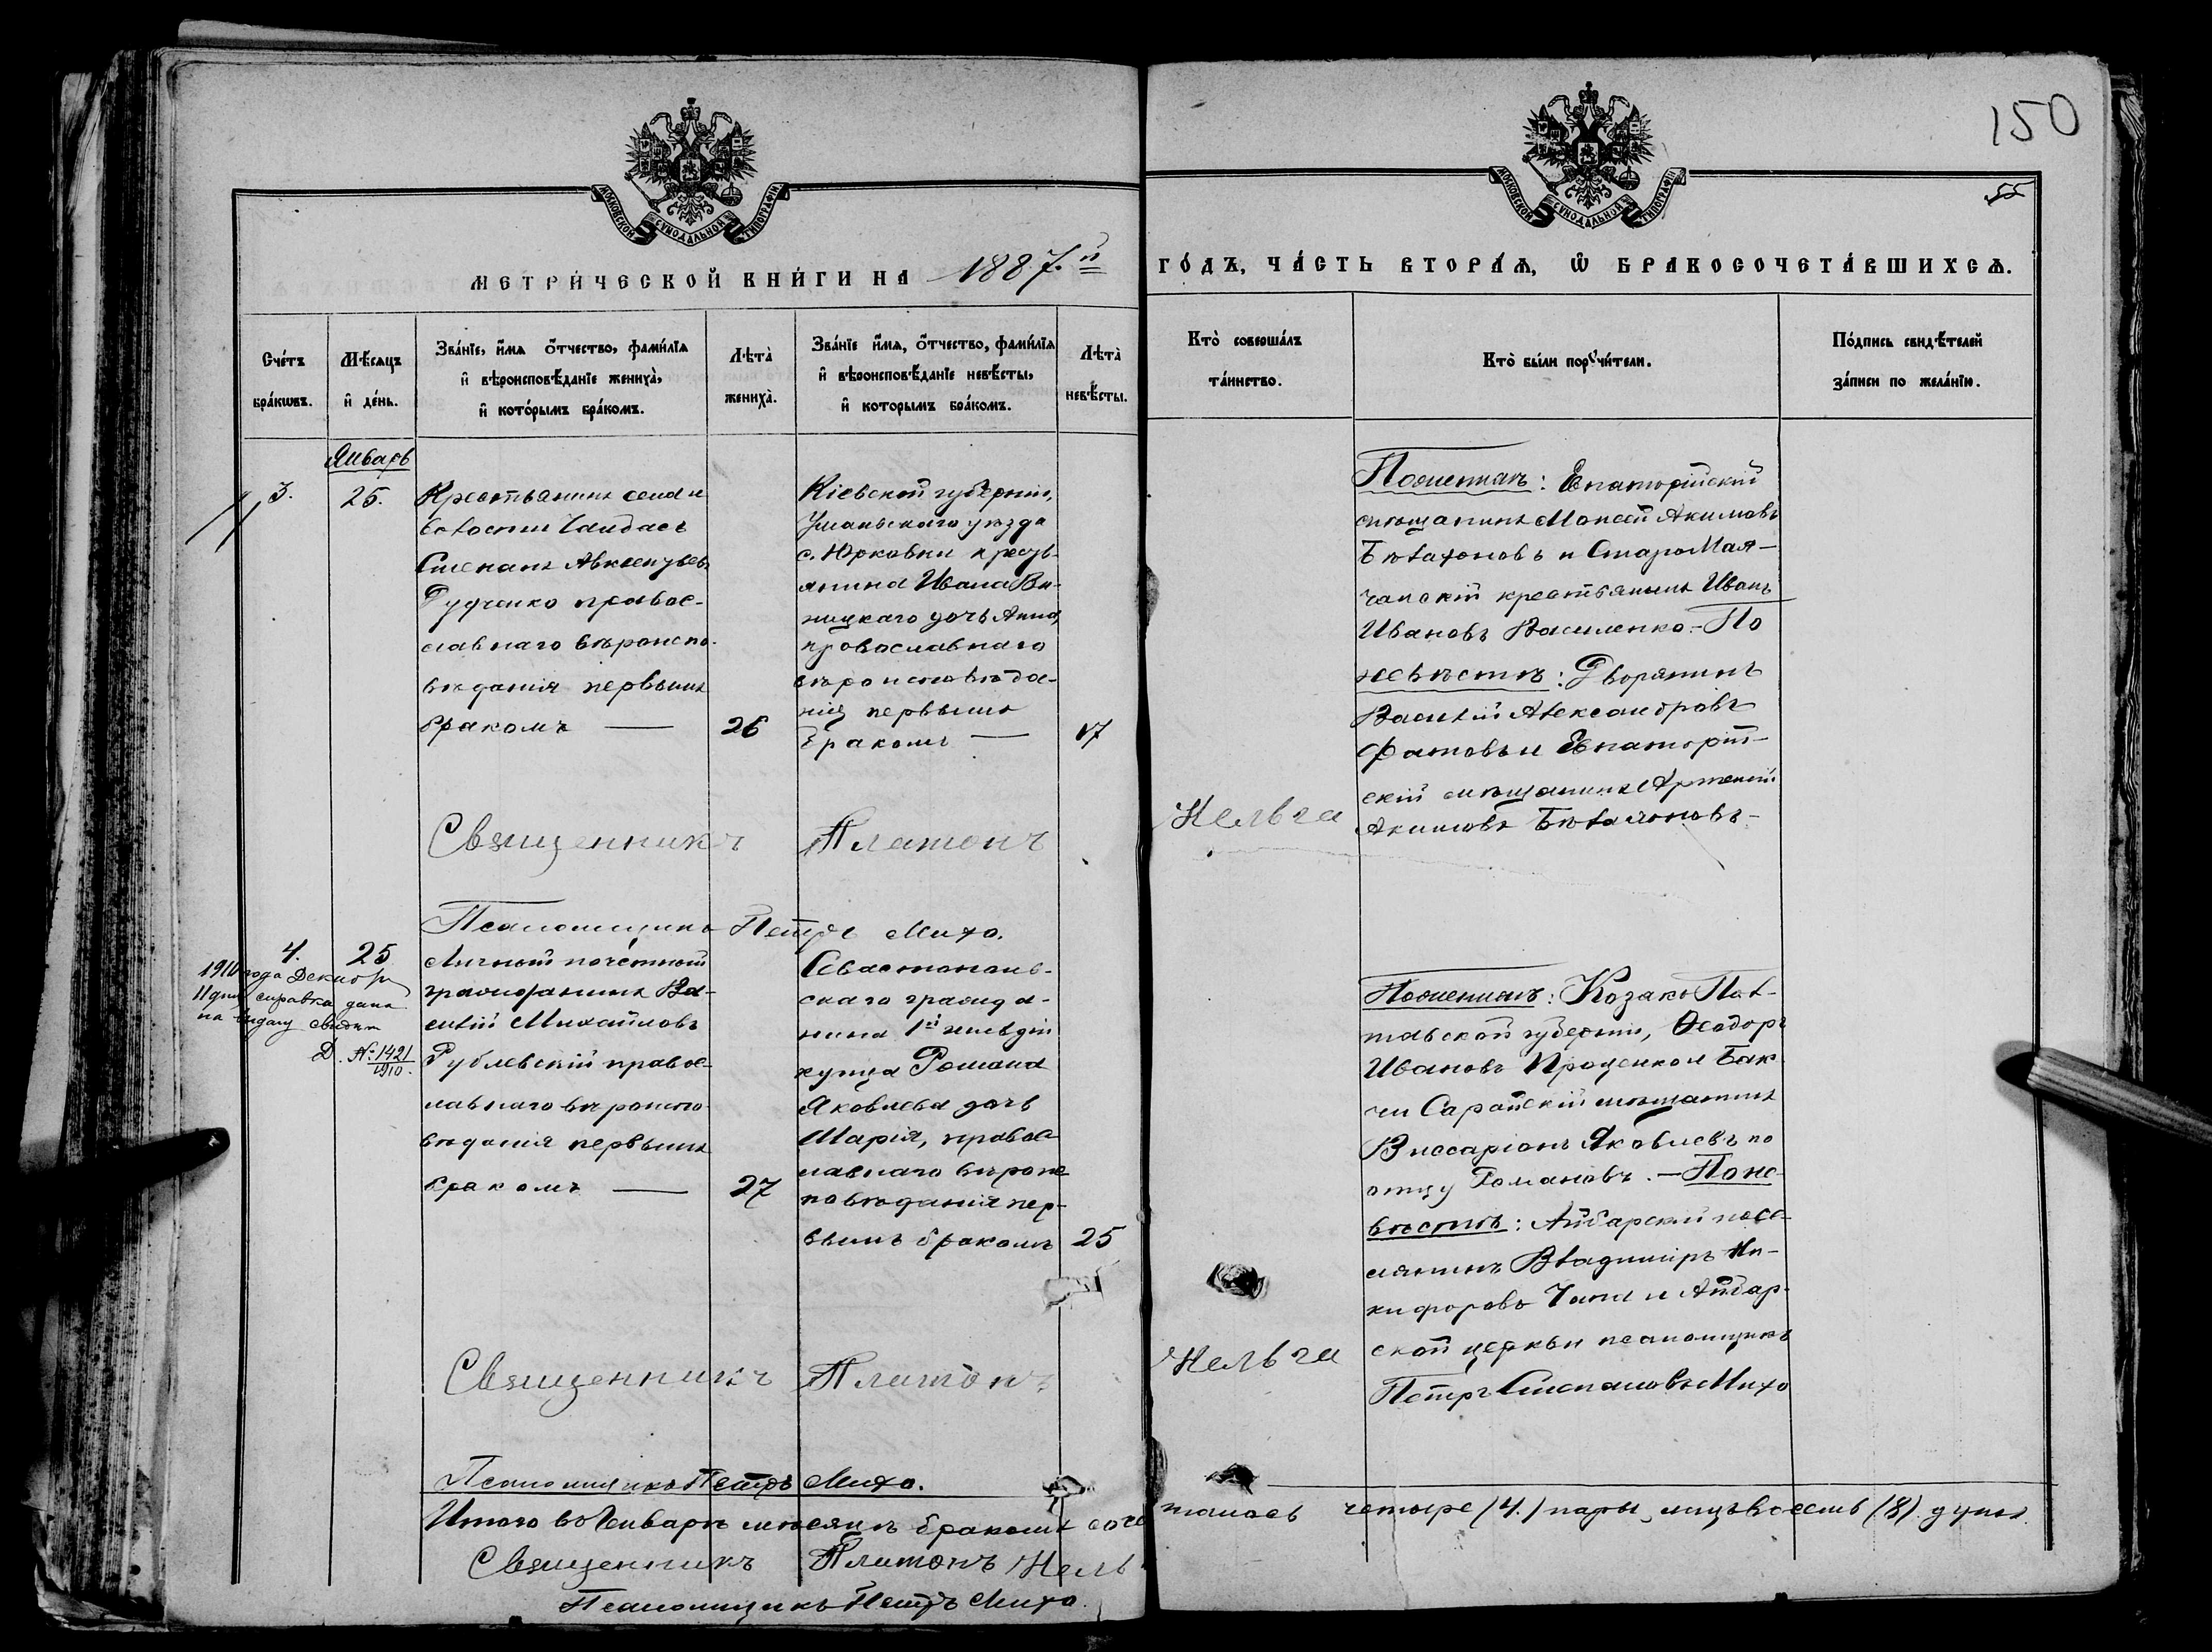 150
55
МОСКОВСКОЙ СѴНОДАЛЬНОЙ ТИПОГРАФІИ
МОСКОВСКОЙ СѴНОДАЛЬНОЙ ТИПОГРАФІИ
МЕТРИ́ЧЕСКОЙ КНИ́ГИ НА 1887.й
ГО́ДЪ, ЧА́СТЬ ВТОРА́Ѧ, Ѽ БРАКОСОЧЕТА́ВШИХСѦ.
Сче́тъ
бра́кѡвъ.
Мѣ́сяцъ
и҆ де́нь.
Зва́нїе, и҆́мѧ ѻ҆́тчество, фами́лїѧ
и҆ вѣроисповѣ́данїе жениха̀,
и҆ кото́рымъ бра́комъ.
Лѣта̀
жениха̀.
Зва́нїе и҆́мѧ, ѻ҆́тчество, фами́лїѧ
и҆ вѣроисповѣ́данїе невѣ́сты,
и҆ которымъ бра́комъ.
Лѣта̀
невѣ́сты.
Кто̀ соверша́лъ
та́инство.
Кто̀ бы́ли порꙋчи́тели.
По́дпись свидѣ́телей
за́писи по жела́нїю.
Январь
3.
25.
Крестьянинъ села и
волости
Степанъ Авксентьевъ
Рудченко правос-
лавнаго вѣроиспо-
вѣданія первымъ
бракомъ —
26
Кіевской губерніи,
Уманьскаго уѣзда
с. Юрковки кресть-
янина Ивана Ви-
ницкаго дочь Анна,
православнаго
вѣроисповѣда-
нія первымъ
бракомъ —
17
По женихѣ: Евпаторійскій
мѣщанинъ Моисей Акимовъ
и Старо Мая-
чанскій крестьянинъ Иванъ
Ивановъ Василенко. – По
невѣстѣ: Дворянинъ
Василій Александровъ
Фатовъ и Евпаторій-
скій мѣщанинъ Артемій
Акимовъ
Священникъ Платонъ Кельга
Псаломщикъ Петръ Михо.
4.
25
1910 года Декабр
11 дня справка дана
на выдачу свидѣт
Д. № 1421
1910.
Личный почетный
гражданинъ Ва-
силій Михайловъ
Рублевскій правос-
лавнаго вѣроиспо-
вѣданія первымъ
бракомъ —
27
Севастополь-
скаго гражда-
нина 1й гильдіи
купца Романа
Яковлева дочь
Марія, правос-
лавнаго вѣроис
повѣданія пер-
вымъ бракомъ
25
По женихѣ: Козакъ Пол-
тавской губерніи, Ѳеодоръ
Ивановъ Проценко и Бах-
чи Сарайскій мѣщанинъ
Виссаріонъ Яковлевъ по
отцу Романовъ. – По не-
вѣстѣ: Айбарскій посе-
лянинъ Владиміръ Ни-
кифоровъ Чапа и Айбар-
ской церкви псаломщикъ
Петръ Степановъ Михо
Священникъ Платонъ Кельга
Псаломщикъ Петръ Михо.
Итого въ Январѣ мѣсяцѣ бракомъ соче талось четыре (4.) пары, лицъ восемь (8). душъ.
Священникъ Платонъ Кель
Псаломщикъ Петръ Михо.